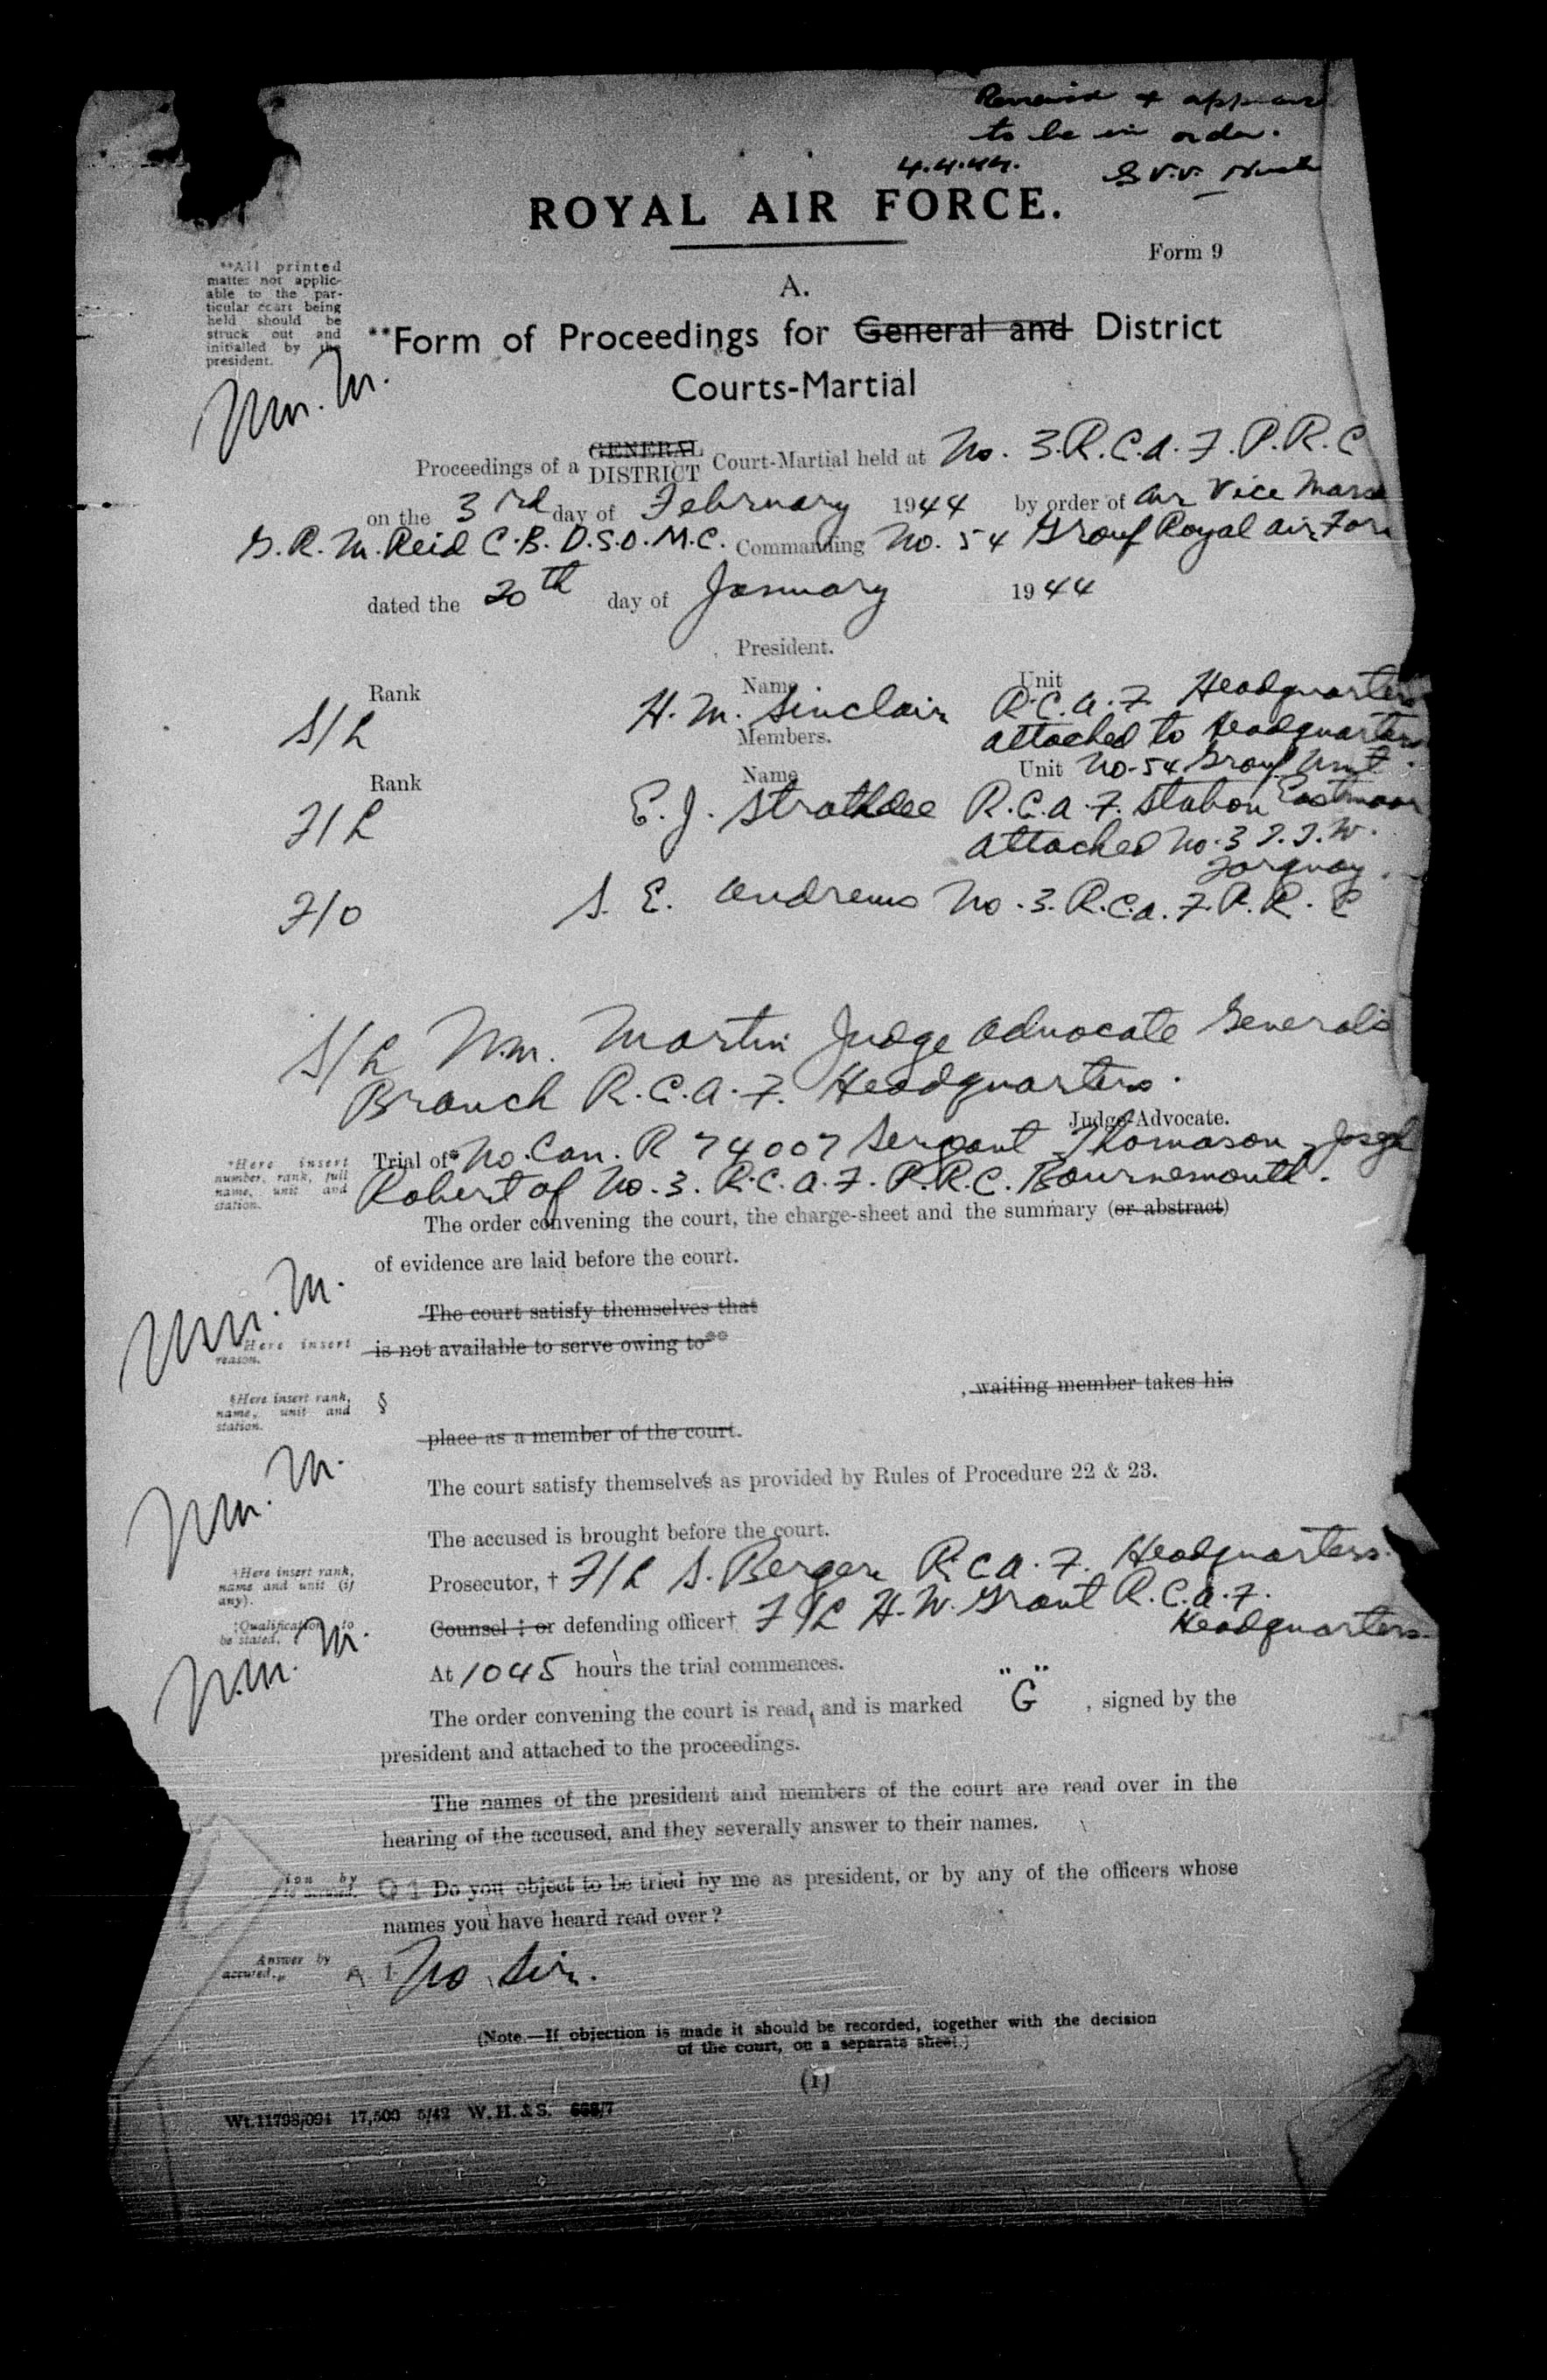 to be in order.
4.4.44.
ROYAL AIR FORCE.
Form 9
A.
**All printed
matter not applic-
able to the par-
ticular court being
held should be
struck out and
initialled by the
president.
**Form of Proceedings for General and District
Courts-Martial
Wm. M.
Proceedings of a GENERAL DISTRICT Court-Martial held at No. 3. R.C.A.F. P.R.C
on the 3rd day of February 1944 by order of Air Vice Marsh
G.R.M. Reid C.B. D.S.O. M.C. Commanding No. 54 Group Royal Air Forc
dated the 20th day of January 1944
President.
Rank Name Unit
S/L H.M. Sinclair R.C.A.F. Headquarters
attached to Headquarters
No. 54 Group Unit.
Members.
Rank Name Unit
F/L E.J. Strathdee R.C.A.F. Station Eastmoor
attached No. 3 I.T.W.
Torquay.
F/O S.E. Andrews No. 3. R.C.A.F. P.R.C
S/L Wm. Martin Judge Advocate General's
Branch R.C.A.F. Headquarters.
Judge-Advocate.
*Here insert
number, rank, full
name, unit and
station.
Trial of* No. Can. R 74007 Sergeant Thomason, Joseph
Robert of No. 3. R.C.A.F. P.R.C. Bournemouth.
The order convening the court, the charge-sheet and the summary (or abstract)
of evidence are laid before the court.
Wm. M.
The court satisfy themselves that
Here insert
reason.
is not available to serve owing to**
, waiting member takes his
§Here insert rank,
name, unit and
station.
§
place as a member of the court.
Wm. M.
The court satisfy themselves as provided by Rules of Procedure 22 & 23.
The accused is brought before the court.
†Here insert rank,
name and unit (if
any).
Prosecutor, † F/L S. Berger R.C.A.F. Headquarters.
‡Qualification to
be stated.
Counsel ‡ or defending officer† F/L H.W. Grant R.C.A.F.
Headquarters.
Wm. M.
At 1045 hours the trial commences.
The order convening the court is read, and is marked "G" , signed by the
president and attached to the proceedings.
The names of the president and members of the court are read over in the
hearing of the accused, and they severally answer to their names.
Q 1 Do you object to be tried by me as president, or by any of the officers whose
names you have heard read over?
Answer by
accused.
A 1 No Sir.
(Note.—If objection is made it should be recorded, together with the decision
of the court, on a separate sheet.)
(1)
Wt.11798/091 17,500 5/42 W.H.&S. 668/7